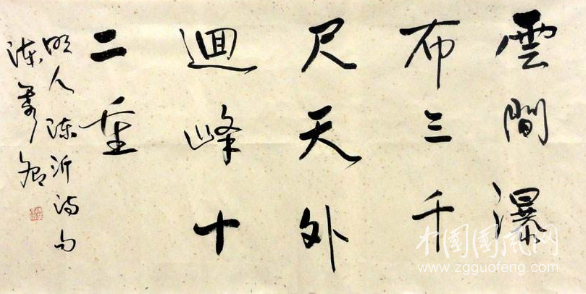 雲間瀑
布三千
尺天外
迴峰十
二重
明人陈沂诗句
陈
中国国风网
www.zgguofeng.com